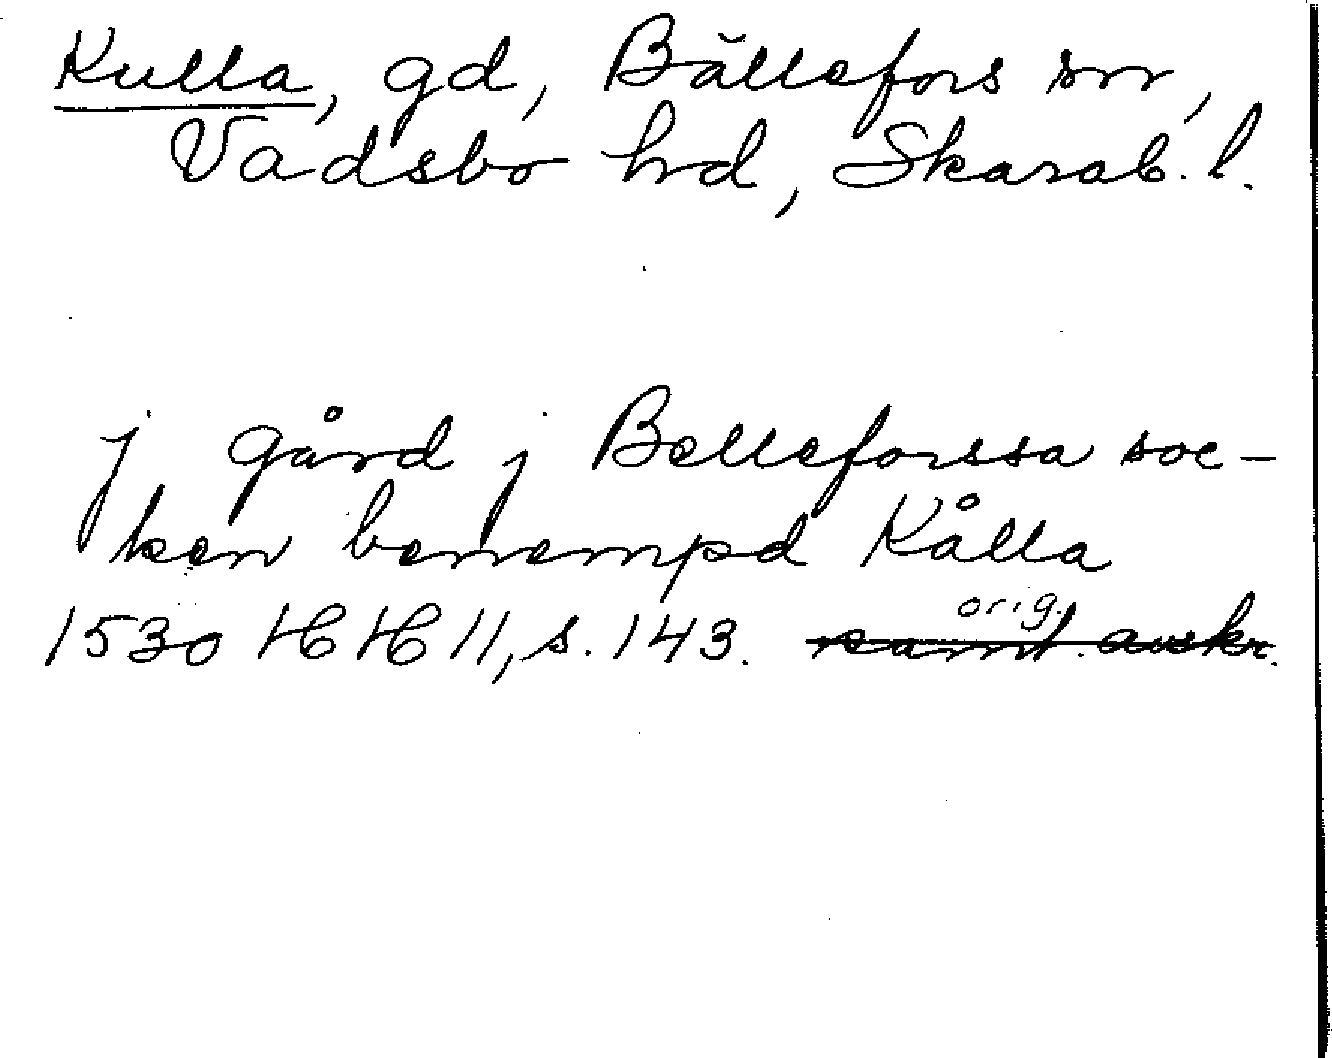 Kulla, gd, Bällefors sn,
Vadsbo hd, Skarab. l.
j gård j Belleforssa soc-
ken benempd Kålla
orig.
1530 HH 11, s. 143. samt. avskr.